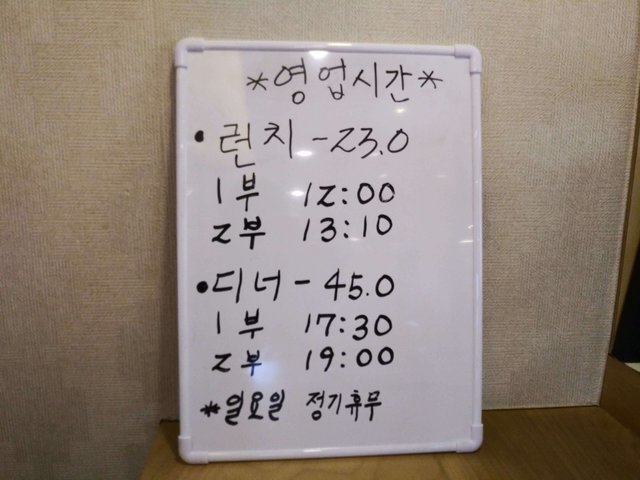 *영업시간*
• 런치 - 23.0
1부 12:00
2부 13:10
• 디너 - 45.0
1부 17:30
2부 19:00
*일요일 정기휴무